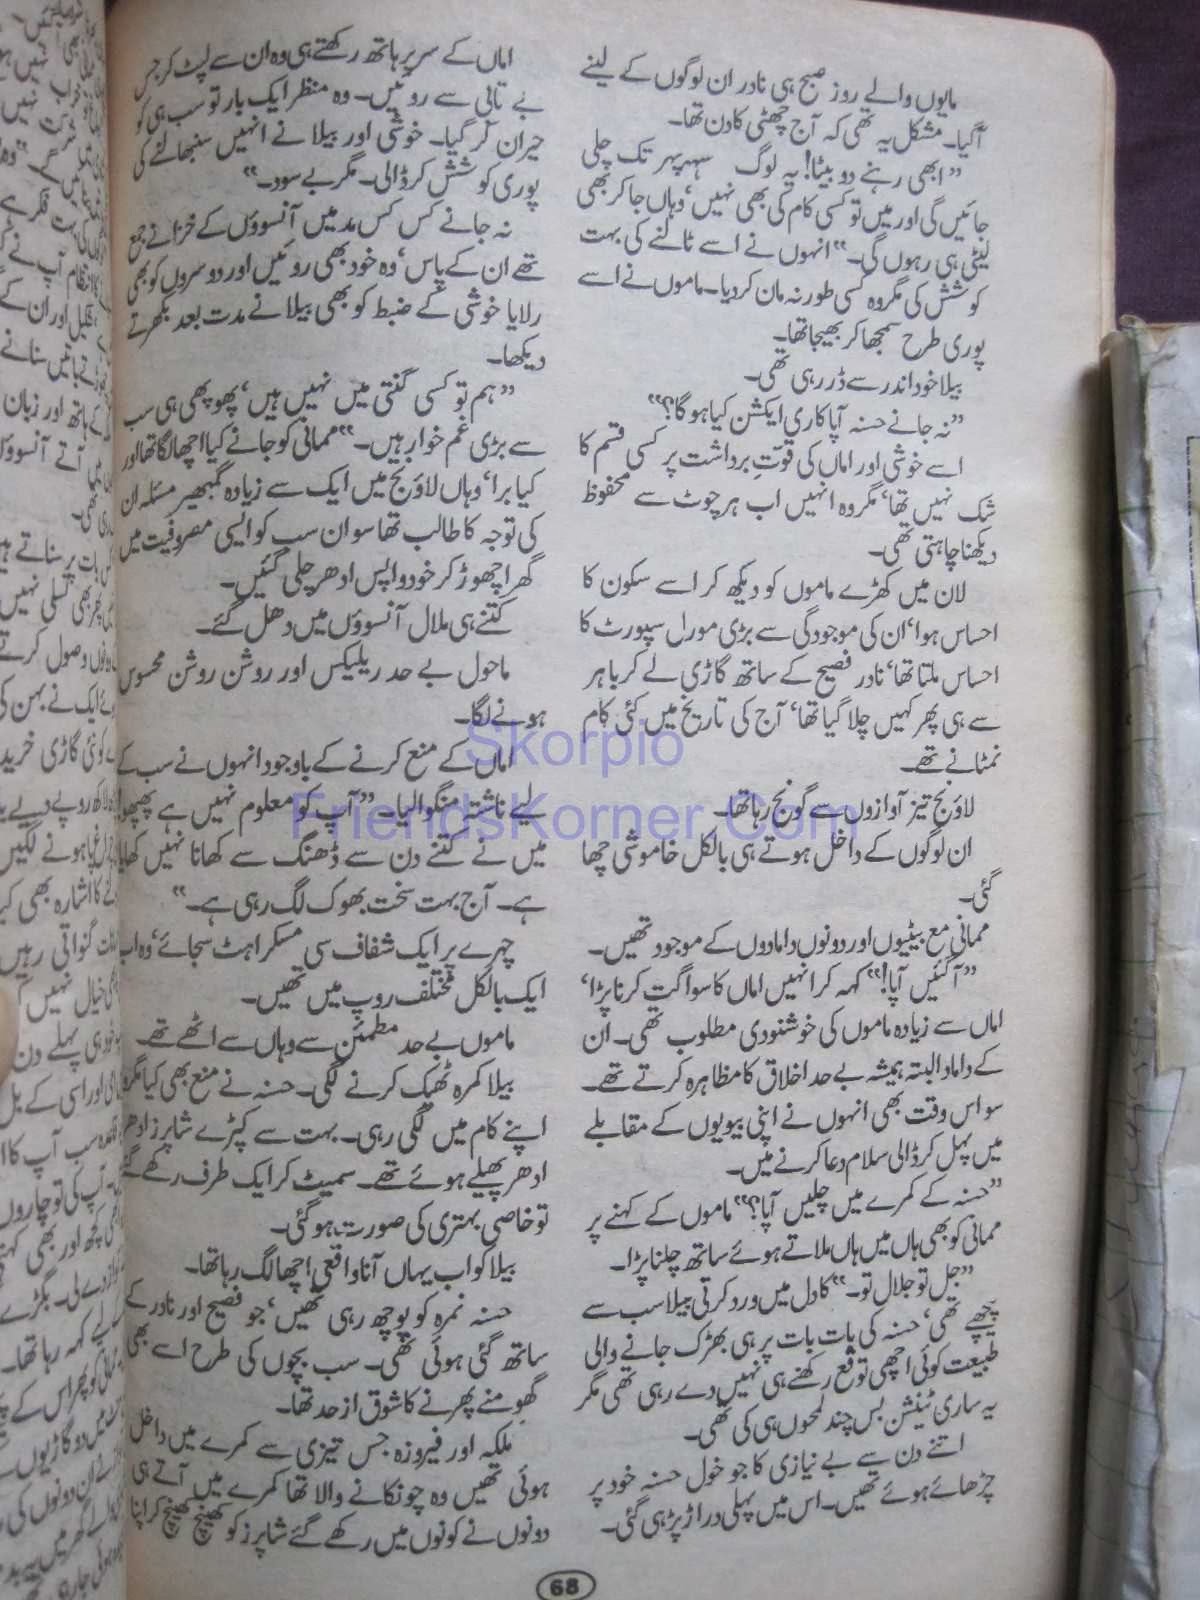 مایوں والے روز صبح ہی نادر ان لوگوں کے لینے
آگیا۔ مشکل یہ تھی کہ آج چھٹی کا دن تھا۔
”ابھی رہنے دو بیٹا! یہ لوگ سہ پہر تک چلی
جائیں گی اور میں تو کسی کام کی بھی نہیں‘ وہاں جاکر بھی
لیٹی ہی رہوں گی۔“ انہوں نے اسے ٹالنے کی بہت
کوشش کی مگر وہ کسی طور نہ مان کر دیا۔ ماموں نے اسے
پوری طرح سمجھا کر بھیجا تھا۔
بیلا خود اندر سے ڈر رہی تھی۔
”نہ جانے حسنہ آپا کا ری ایکشن کیا ہوگا؟“
اسے خوشی اور اماں کی قوتِ برداشت پر کسی قسم کا
شک نہیں تھا‘ مگر وہ انہیں اب ہر چوٹ سے محفوظ
دیکھنا چاہتی تھی۔
لان میں کھڑے ماموں کو دیکھ کر اسے سکون کا
احساس ہوا‘ ان کی موجودگی سے بڑی مورل سپورٹ کا
احساس ملتا تھا‘ نادر فصیح کے ساتھ گاڑی لے کر باہر
سے ہی پھر کہیں چلا گیا تھا‘ آج کی تاریخ میں کئی کام
نمٹانے تھے۔
لاؤنج تیز آوازوں سے گونج رہا تھا۔
ان لوگوں کے داخل ہوتے ہی بالکل خاموشی چھا
گئی۔
ممانی مع بیٹیوں اور دونوں دامادوں کے موجود تھیں۔
”آگئیں آپا!“ کہہ کر انہیں اماں کا سواگت کرنا پڑا‘
اماں سے زیادہ ماموں کی خوشنودی مطلوب تھی۔ ان
کے داماد البتہ ہمیشہ بے حد اخلاق کا مظاہرہ کرتے تھے۔
سو اس وقت بھی انہوں نے اپنی بیویوں کے مقابلے
میں پہل کر ڈالی سلام دعا کرنے میں۔
”حسنہ کے کمرے میں چلیں آپا؟“ ماموں کے کہنے پر
ممانی کو بھی ہاں میں ہاں ملاتے ہوئے ساتھ چلنا پڑا۔
”جل تو جلال تو۔“ کا دل میں ورد کرتی بیلا سب سے
پیچھے تھی‘ حسنہ کی بات بات پر ہی بھڑک جانے والی
طبیعت کوئی اچھی توقع رکھنے ہی نہیں دے رہی تھی مگر
یہ ساری ٹینشن بس چند لمحوں ہی کی تھی۔
اتنے دن سے بے نیازی کا جو خول حسنہ خود پر
چڑھائے ہوئے تھیں۔ اس میں پہلی دراڑ پڑ ہی گئی۔
اماں کے سر پر ہاتھ رکھتے ہی وہ ان سے لپٹ کر جس
بے تابی سے روئیں۔ وہ منظر ایک بار تو سب ہی کو
حیران کر گیا۔ خوشی اور بیلا نے انہیں سنبھالنے کی
پوری کوشش کر ڈالی۔ مگر بے سود۔“
نہ جانے کس کس مد میں آنسوؤں کے خزانے جمع
تھے ان کے پاس‘ وہ خود بھی روئیں اور دوسروں کو بھی
رلایا خوشی کے ضبط کو بھی بیلا نے مدت بعد بکھرتے
دیکھا۔
”ہم تو کسی گنتی میں نہیں ہیں‘ پھوپھی ہی سب
سے بڑی غم خوار ہیں۔“ ممانی کو جانے کیا اچھا لگا تھا اور
کیا برا‘ وہاں لاؤنج میں ایک سے زیادہ گمبھیر مسئلہ ان
کی توجہ کا طالب تھا سو ان سب کو ایسی مصروفیت میں
گھرا چھوڑ کر خود واپس ادھر چلی گئیں۔
کتنے ہی ملال آنسوؤں میں دھل گئے۔
ماحول بے حد ریلیکس اور روشن روشن محسوس
ہونے لگا۔
اماں کے منع کرنے کے باوجود انہوں نے سب کے
لیے ناشتہ منگوالیا۔ ”آپ کو معلوم نہیں ہے پھپھو
میں نے کتنے دن سے ڈھنگ سے کھانا نہیں کھایا
ہے۔ آج بہت سخت بھوک لگ رہی ہے۔“
چہرے پر ایک شفاف سی مسکراہٹ سجائے‘ وہ اب
ایک بالکل مختلف روپ میں تھیں۔
ماموں بے حد مطمئن سے وہاں سے اٹھے تھے۔
بیلا کمرہ ٹھیک کرنے لگی۔ حسنہ نے منع بھی کیا مگر وہ
اپنے کام میں لگی رہی۔ بہت سے کپڑے شاپرز ادھر
ادھر پھیلے ہوئے تھے۔ سمیٹ کر ایک طرف رکھے گئے
تو خاصی بہتری کی صورت ہو گئی۔
بیلا کو اب یہاں آنا واقعی اچھا لگ رہا تھا۔
حسنہ نمرہ کو پوچھ رہی تھیں‘ جو فصیح اور نادر کے
ساتھ گئی ہوئی تھی۔ سب بچوں کی طرح اسے بھی
گھومنے پھرنے کا شوق از حد تھا۔
ملکہ اور فیروزہ جس تیزی سے کمرے میں داخل
ہوئی تھیں وہ چونکانے والا تھا کمرے میں آتے ہی
دونوں نے کونوں میں رکھے گئے شاپرز کو کھینچ کھینچ کر اپنا
68
Skorpio
FriendsKorner.Com